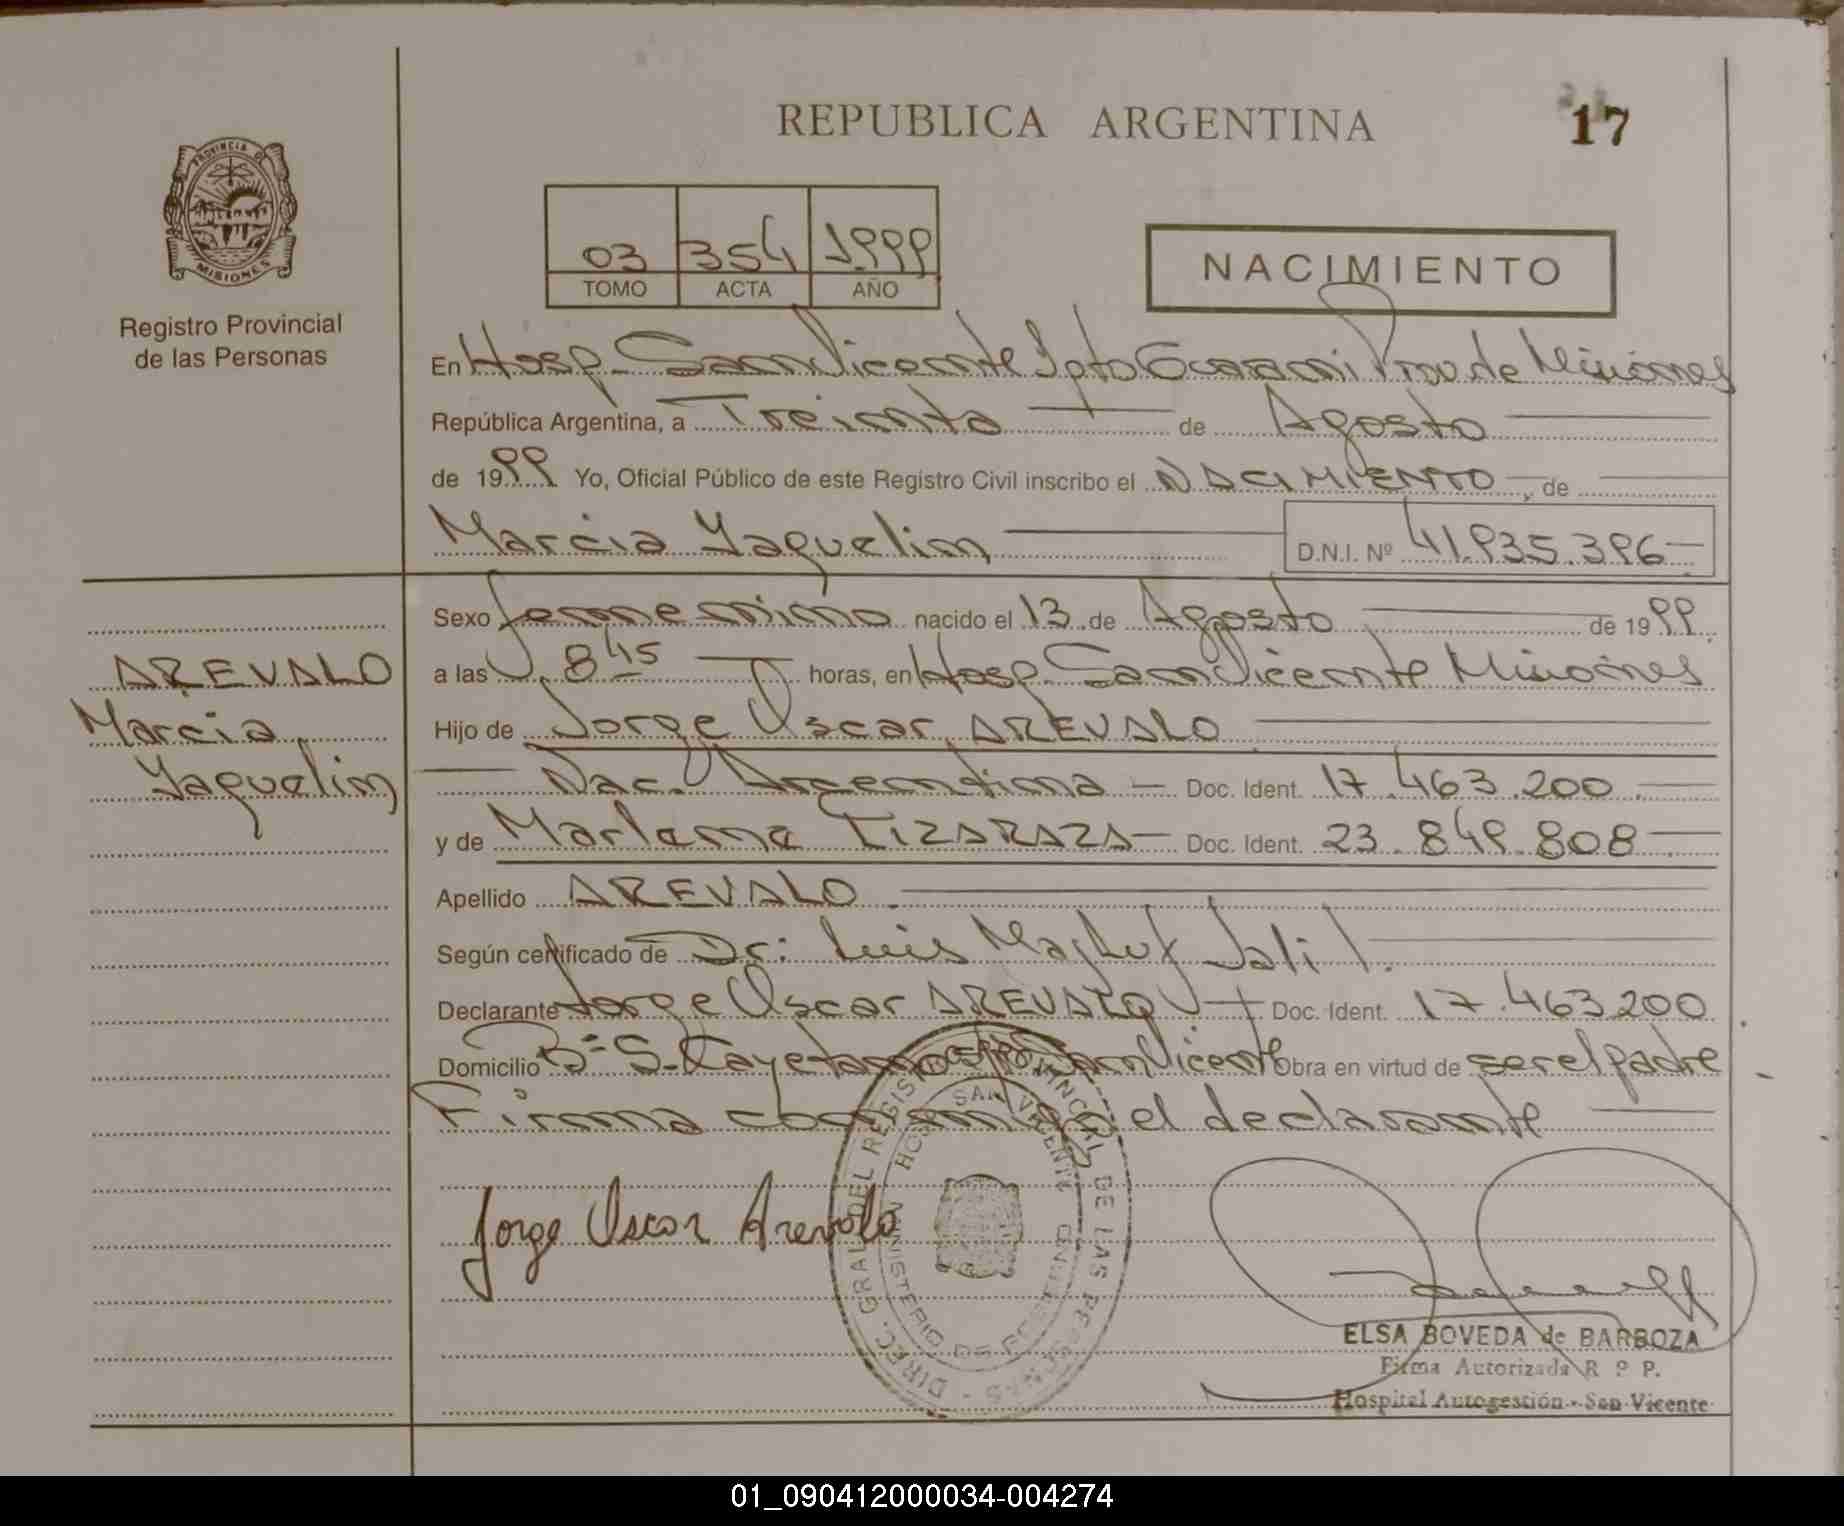 REPUBLICA ARGENTINA
17
PROVINCIA DE
MISIONES
Registro Provincial
de las Personas
03 354 1999
TOMO ACTA AÑO
NACIMIENTO
En Hosp. San Vicente Dpto Guarani Prov de Misiones
República Argentina, a Treinta de Agosto
de 1999 Yo, Oficial Público de este Registro Civil inscribo el NACIMIENTO, de
Marcia Yaquelin D.N.I. Nº 41.935.396
Sexo femenino nacido el 13 de Agosto de 1999
a las 8 45 horas, en Hosp. San Vicente Misiones
Hijo de Jorge Oscar AREVALO
Nac. Argentina - Doc. Ident. 17.463.200
y de Marlene LIZARAZA Doc. Ident. 23.849.808
Apellido AREVALO
Según certificado de Dr: Luis Jalil.
Declarante Jorge Oscar AREVALO Doc. Ident. 17.463200
Domicilio Bº S. Cayetano San Vicente Obra en virtud de ser el padre
Firma conmigo el declarante
AREVALO
Marcia
Yaquelin
Jorge Oscar Arevalo
DIREC. GRAL. DEL REGISTRO PROVINCIAL DE LAS PERSONAS
HOSP. SAN VICENTE
MINISTERIO DE
ELSA BOVEDA de BARBOZA
Firma Autorizada R P P.
Hospital Autogestión - San Vicente
01_090412000034-004274